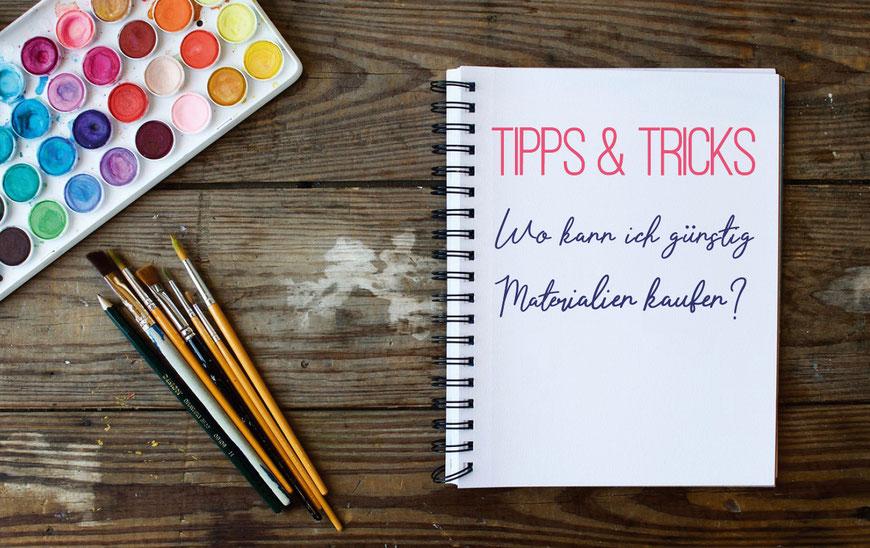 TIPPS & TRICKS
Wo kann ich günstig
Materialien kaufen?